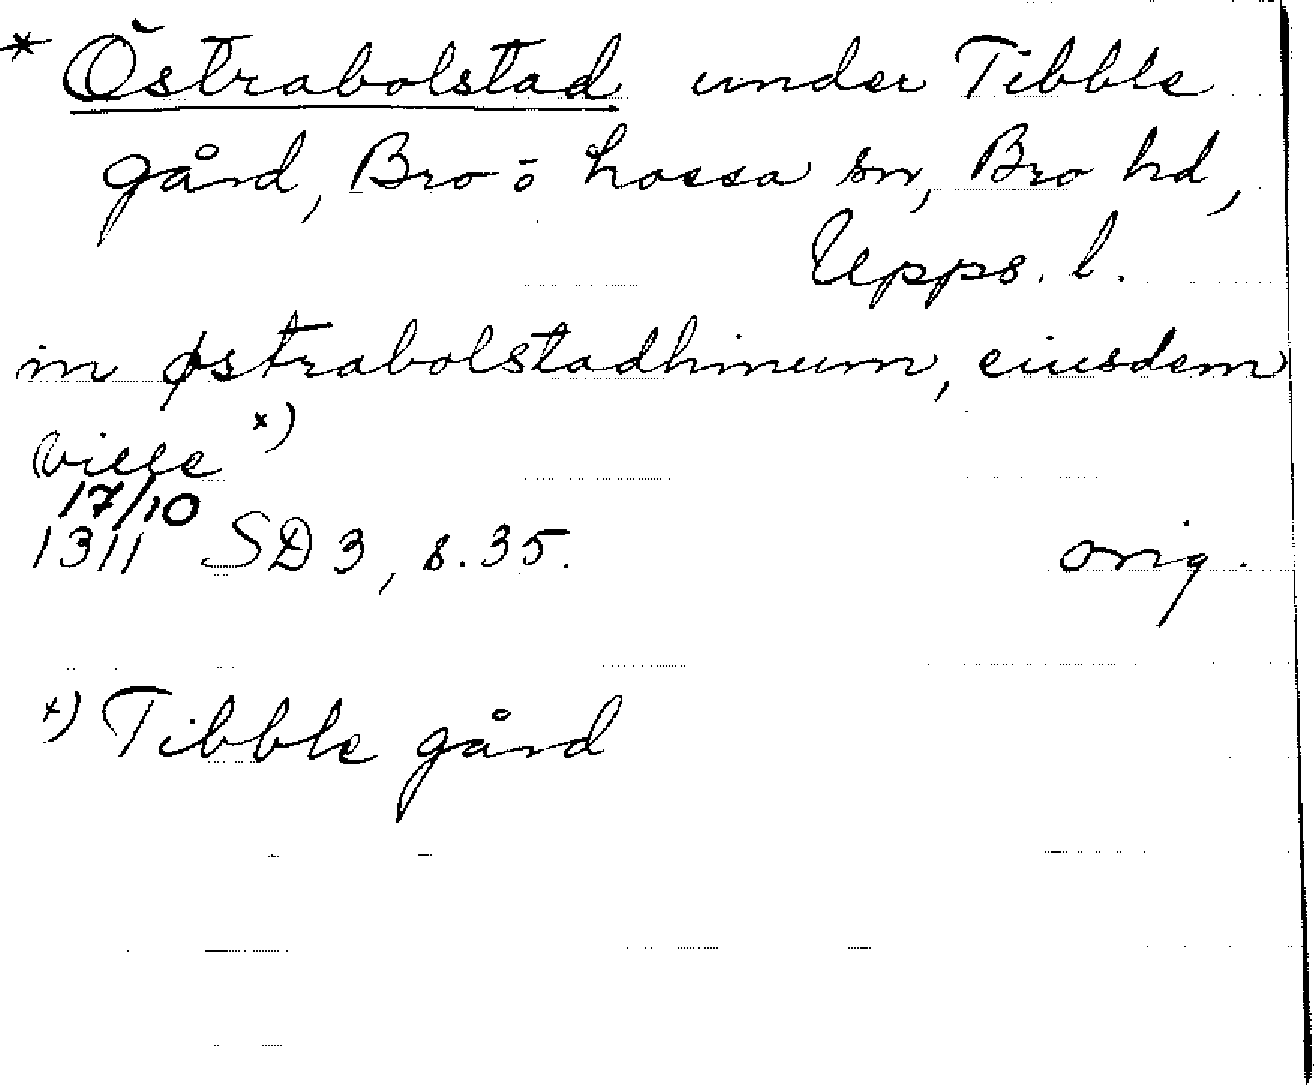 * Östrabolstad under Tibble
gård, Bro o Lossa sn, Bro hd,
Upps. l.
in østrabolstadhinum, eiusdem
ville x)
17/10
1311 SD 3, s. 35. orig.
x) Tibble gård